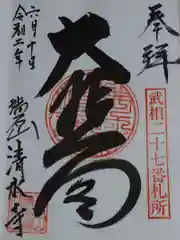 奉拝
武相二十七番札所
大悲閣
瑞石山清水寺
令和二年
六月十日